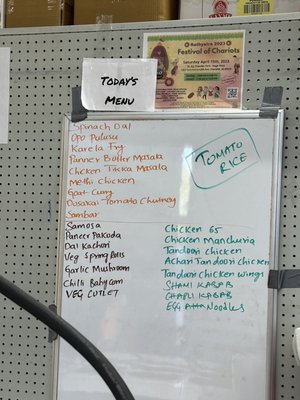 TODAY'S
MENU
Rathyatra 2023
Festival of Chariots
Saturday April 15th, 2023
Spinach Dal
Opo Pulusu
Karela Fry
Panner Butter Masala
Chicken Ticka Masala
Methi Chicken
Goat Curry
Dosakai Tomato Chutney
Sambar
TOMATO
RICE
Samosa
Paneer Pakoda
Dal Kachori
Veg Spring Rolls
Garlic Mushroom
Chilli Babycorn
VEG CUTLET
Chicken 65
Chicken Manchuria
Tandoori Chicken
Achari Tandoori Chicken
Tandoori Chicken Wings
SHAMI KABAB
CHAPLI KABAB
EGG Noodles